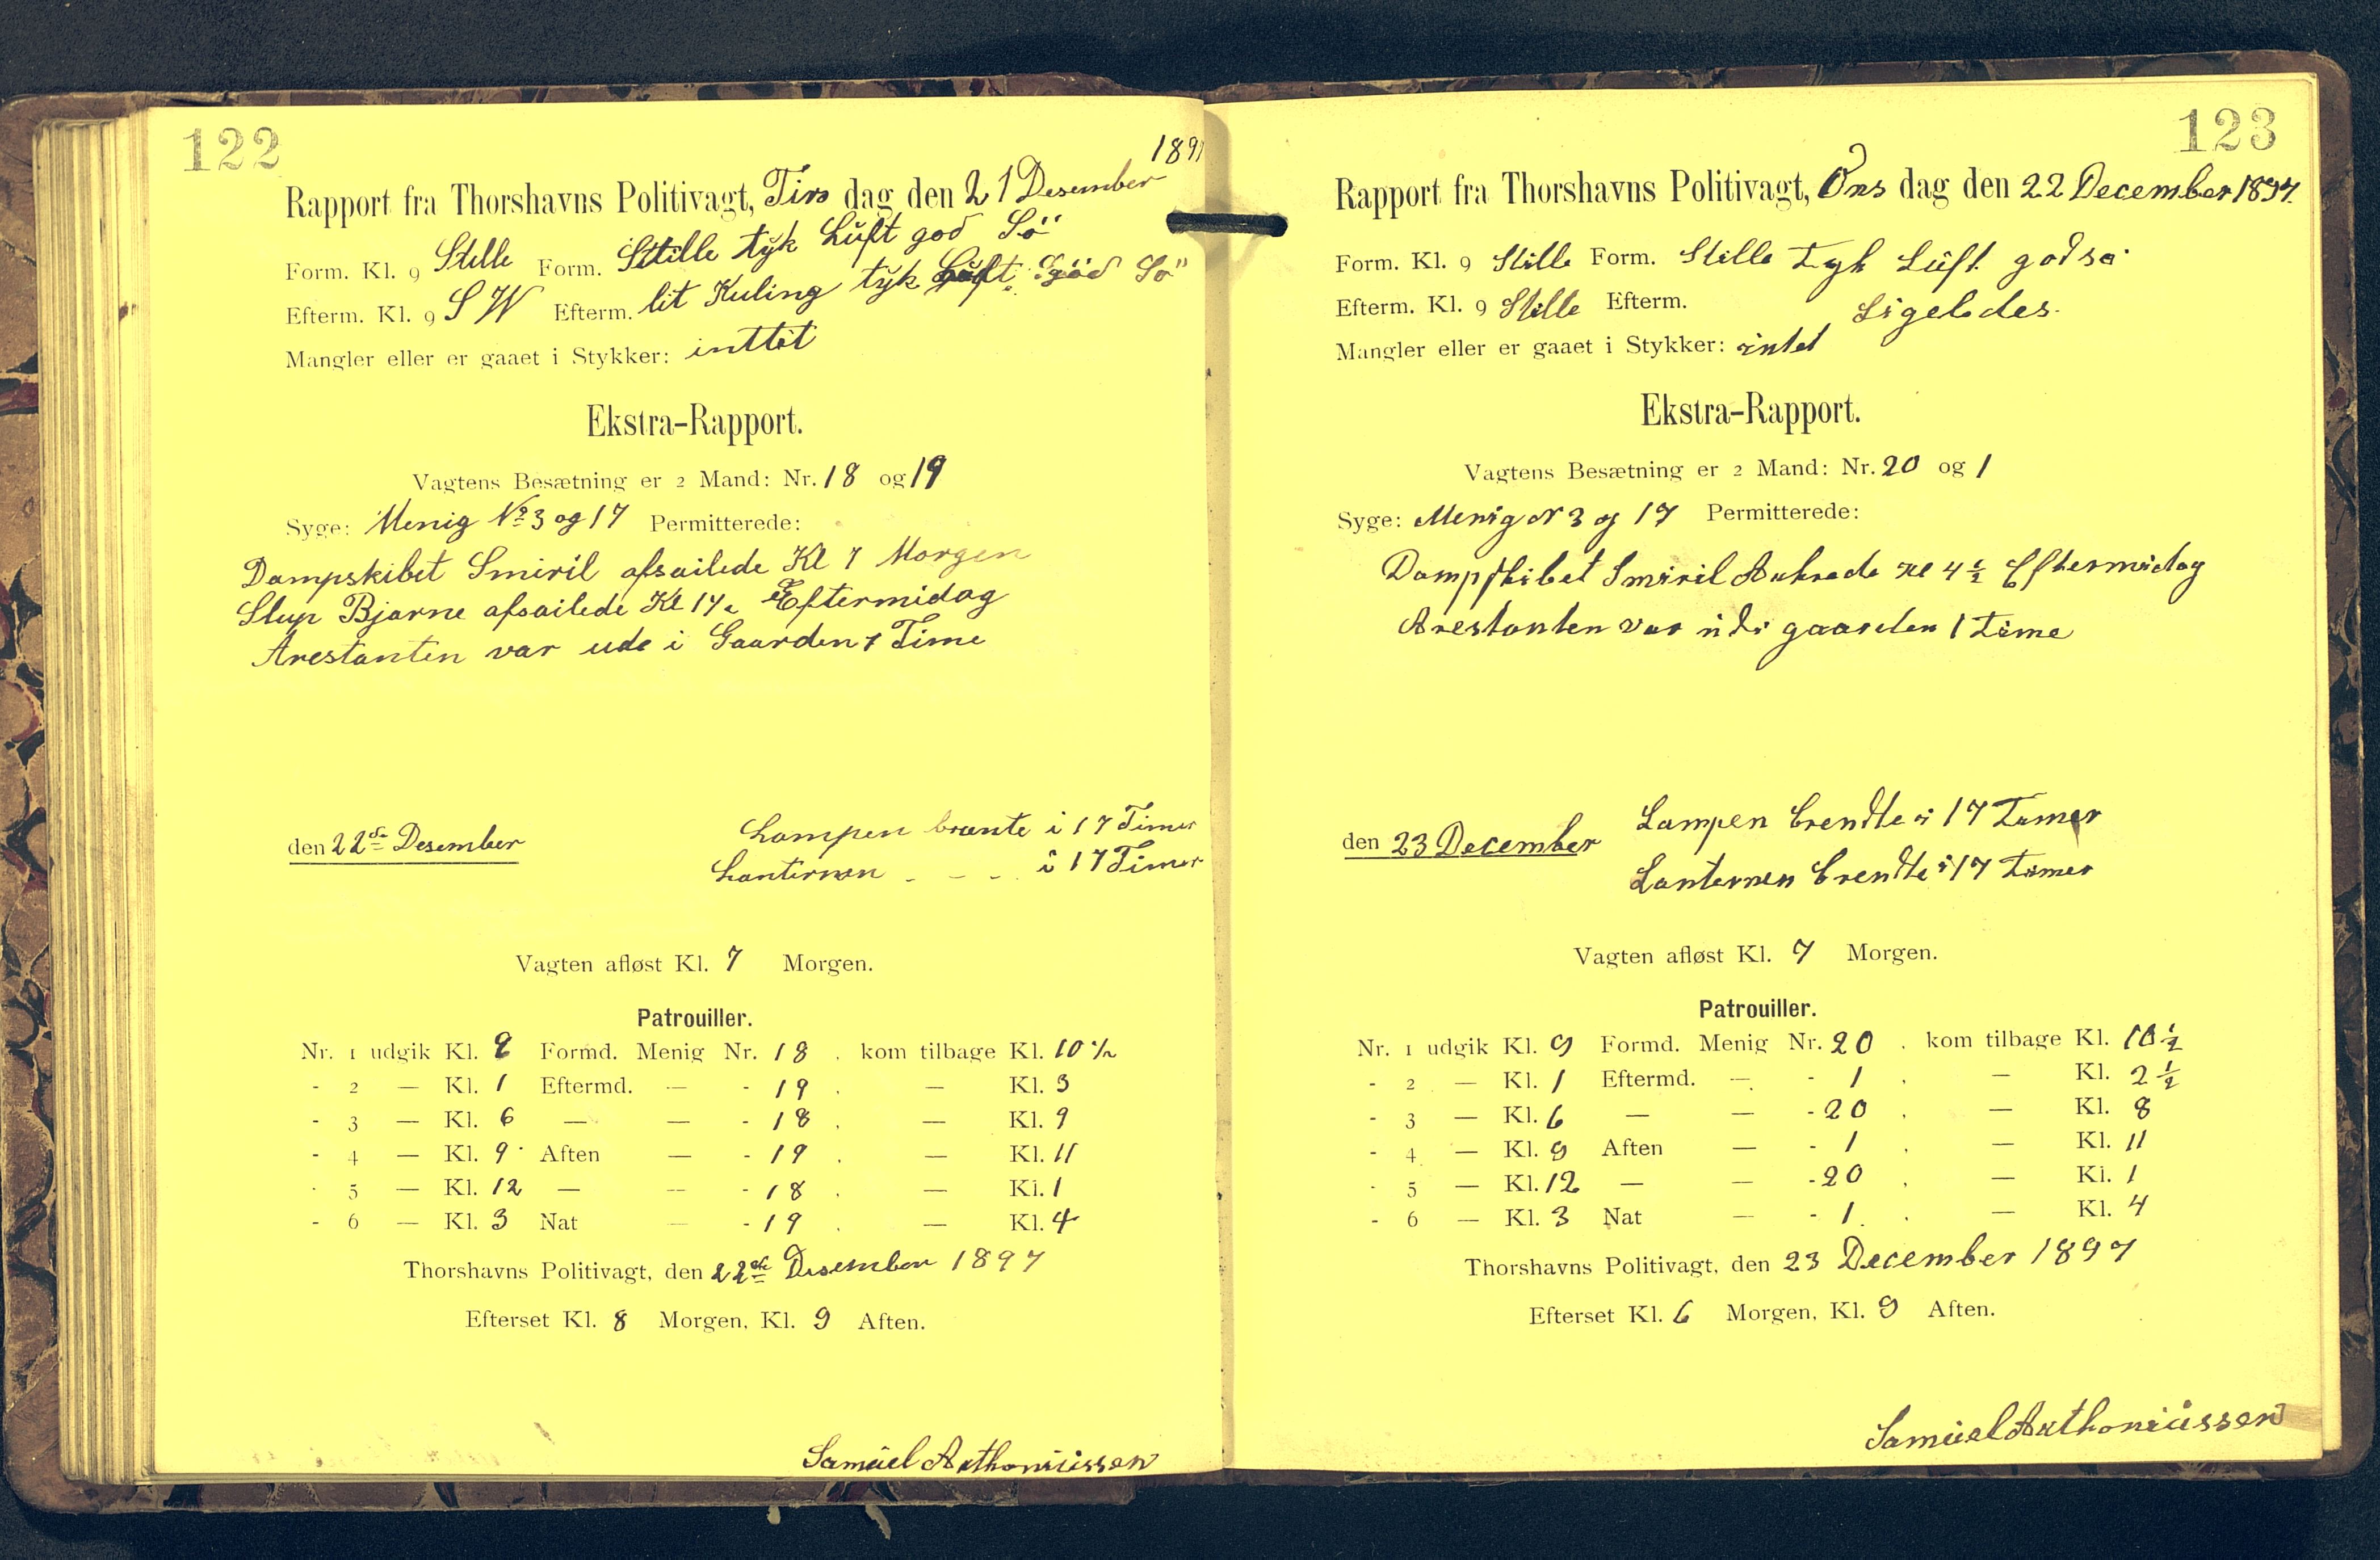 122
1897
Rapport fra Thorshavns Politivagt, Tirs dag den 21 Desember
Form. Kl. 9 Stille Form. Stille tyk Luft god Sö
Efterm. Kl. 9 S W Efterm. lit Kuling tyk Luft god Sö
Mangler eller er gaaet i Stykker: inttet
Ekstra-Rapport.
Vagtens Besætning er 2 Mand: Nr. 18 og 19
Syge: Menig No 3 og 17 Permitterede:
Dampskibet Smiril afsailede Kl 7 Morgen
Slup Bjarne afsailede Kl Eftermidag
Arestanten var ude i Gaarden 1 Time
den 22de Desember Lampen brænte i 17 Timer
Lanternen - - - i 17 Timer
Vagten afløst Kl. 7 Morgen.
Patrouiller.
Nr. 1 udgik Kl. 9 Formd. Menig Nr. 18 . kom tilbage Kl. 10 ½
- 2 — Kl. 1 Eftermd. — - 19 . — Kl. 3
- 3 — Kl. 6 — — - 18 . — Kl. 9
- 4 — Kl. 9 Aften — - 19 . — Kl. 11
- 5 — Kl. 12 — — - 18 . — Kl. 1
- 6 — Kl. 3 Nat — - 19 . — Kl. 4
Thorshavns Politivagt, den 22de Desember 1897
Efterset Kl. 8 Morgen, Kl. 9 Aften.
Samúel Anthoniússen
123
Rapport fra Thorshavns Politivagt, Ons dag den 22 December 1897.
Form. Kl. 9 Stille Form. Stille Tyk Lúft god sø
Efterm. Kl. 9 Stille Efterm. Ligeledes.
Mangler eller er gaaet i Stykker: intet
Ekstra-Rapport.
Vagtens Besætning er 2 Mand: Nr. 20 og 1
Syge: Menig N 3 og 17 Permitterede:
Dampskibet Smiril Ankrede Kl 4 ½ Eftermidag
Arestanten var údi gaarden 1 Time
den 23 December Lampen brendte i 17 Timer
Lanternen brendte i 17 Timer
Vagten afløst Kl. 7 Morgen.
Patrouiller.
Nr. 1 udgik Kl. 9 Formd. Menig Nr. 20 . kom tilbage Kl. 10 ½
- 2 — Kl. 1 Eftermd. — - 1 . — Kl. 2 ½
- 3 — Kl. 6 — — - 20 . — Kl. 8
- 4 — Kl. 9 Aften — - 1 . — Kl. 11
- 5 — Kl. 12 — — - 20 . — Kl. 1
- 6 — Kl. 3 Nat — - 1 . — Kl. 4
Thorshavns Politivagt, den 23 December 1897
Efterset Kl. 6 Morgen, Kl. 9 Aften.
Samúel Anthoniússen